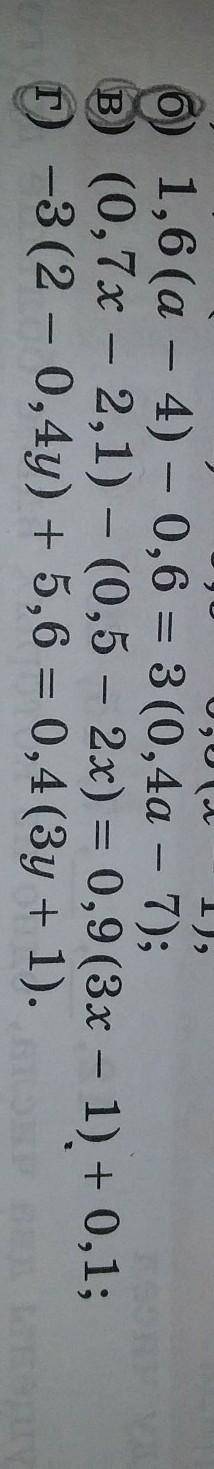 б) 1,6(a − 4) − 0,6 = 3(0,4a − 7);
в) (0,7x − 2,1) − (0,5 − 2x) = 0,9(3x − 1) + 0,1;
г) −3(2 − 0,4y) + 5,6 = 0,4(3y + 1).